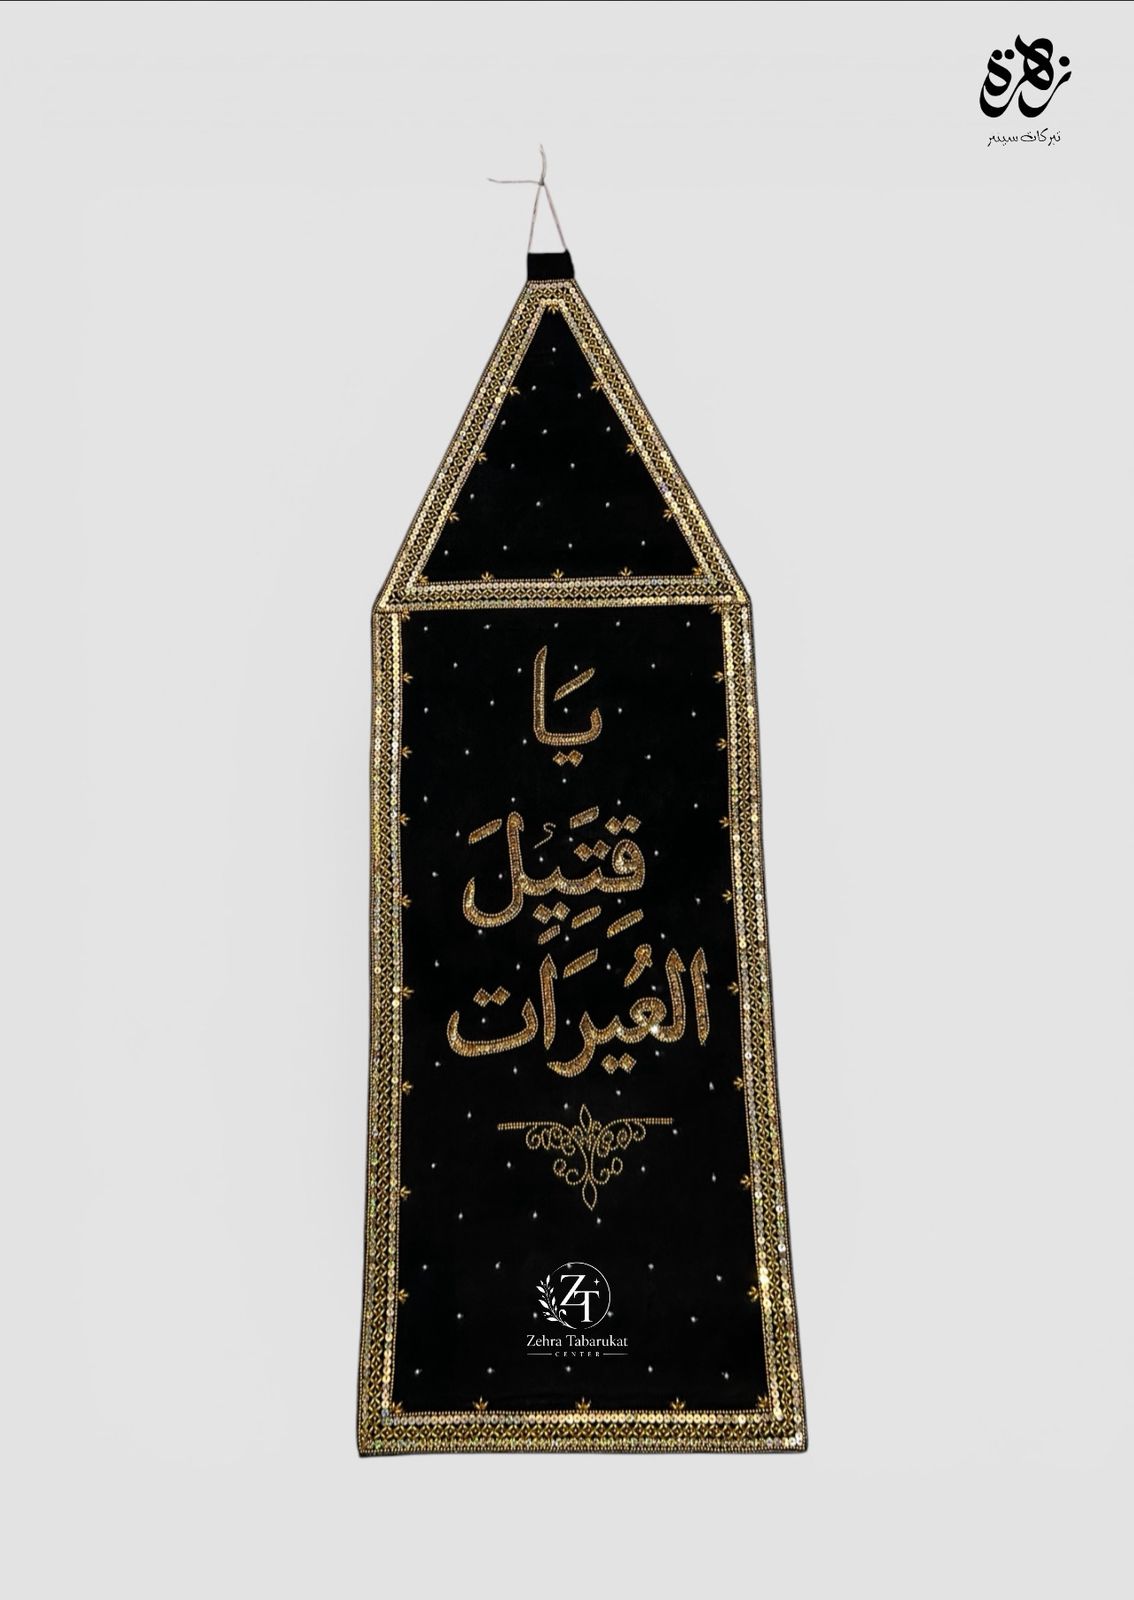 زهرة
تبرکات سینٹر
يَا
قِتَيِلَ
العُيرَات
ZT
Zehra Tabarukat
CENTER